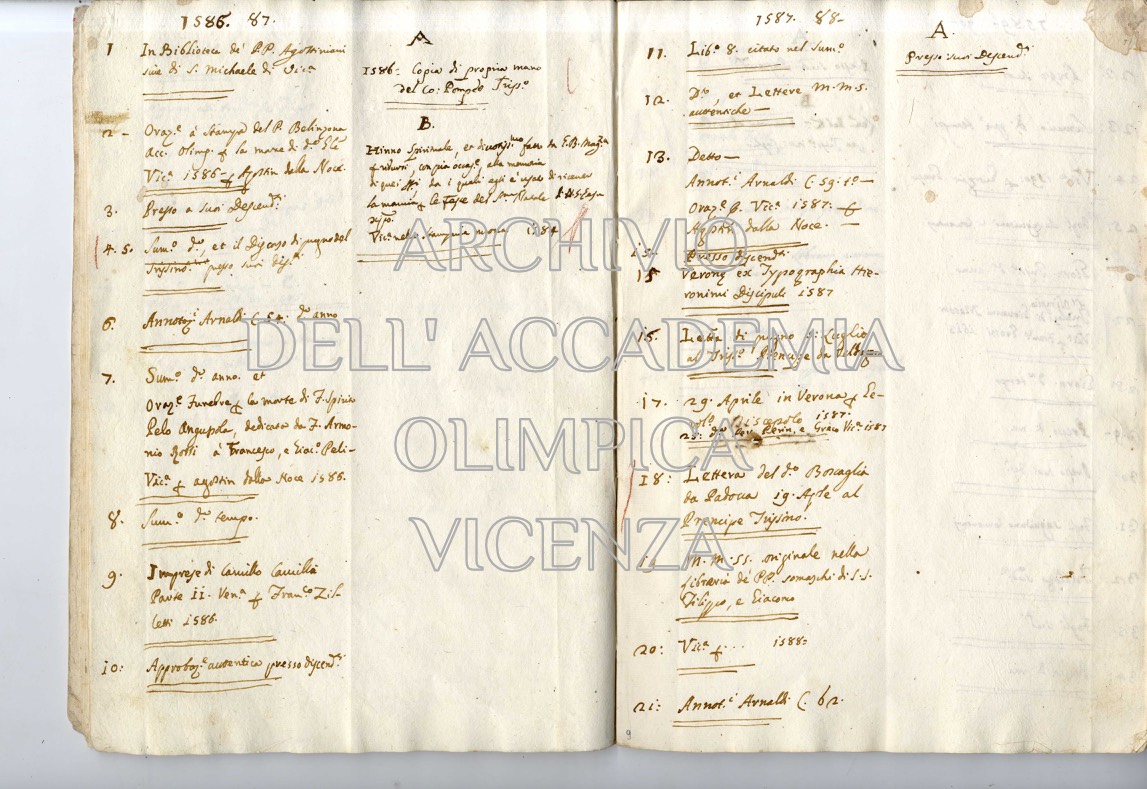 1586. 87.
1 In Biblioteca de' P.P. Agostiniani
sive di S. Michaele di Vic.ª
2 - Oraz.e à Stampa del P. Belinzona
Acc. Olimp. la morte di d.º
Vic.ª 1586 - Agostin dalla Noce.
3. Presso a suoi Descend.ti
4. 5. Sum.º d.º, et il Discorso di pugno del
Trissino presso suoi
6. Annotaz.i Arnaldi C. 54. d.º anno
7. Sum.º d.º anno. et
Oraz.e Funebre la morte di F. Spirito
Pelo Angusola, dedicata da F. Armo-
nio Rotti à Francesco, e Giac.º Peli-
Vic.ª agostin dalla Noce 1586.
8. Sum.º d.º tempo.
9. Imprese di Camillo Camilla
Parte II. Ven.ª Franc.º Zil-
letti 1586.
10: Approbaz.e autentica presso discend.ti
A
1586: Copia di propria mano
del Co: Pompeo Triss.º
B.
Hinno Spirituale, et
con pia occas.e alla memoria
di quei da i quali egli è usato di ricever
la mancia le Feste del Natale
Vic.ª nella stampa nova 1584
1587. 88-
11. Lib.º 8. citato nel Sum.º
12. D.º, et Lettere M.M.S.
autentiche -
13. Detto -
Annot.i Arnaldi C. 59. t.º -
Oraz.e p. Vic.ª 1587. -
Agostin dalla Noce. -
Presso discend.ti
15 Verone ex Typographia Hie-
ronimi Discipuli 1587
Lettera di pugno Luglio
al Tris.º Principe da
17. 29. Aprile in Verona
Discepolo 1587.
28: d.º Perin, e Greco Vic.ª 1587
18: Lettera del d.º Boscaglia
da Padova 19. Aple al
Prencipe Trissino.
19 M.M.SS. originale nella
Libraria de' PP. somaschi di S.S.
Filippo, e Giacomo
20: Vic.ª ... 1588:
21: Annot.i Arnaldi C. 62.
A.
Presso suoi Descend.ti
9
ARCHIVIO
DELL' ACCADEMIA
OLIMPICA
VICENZA